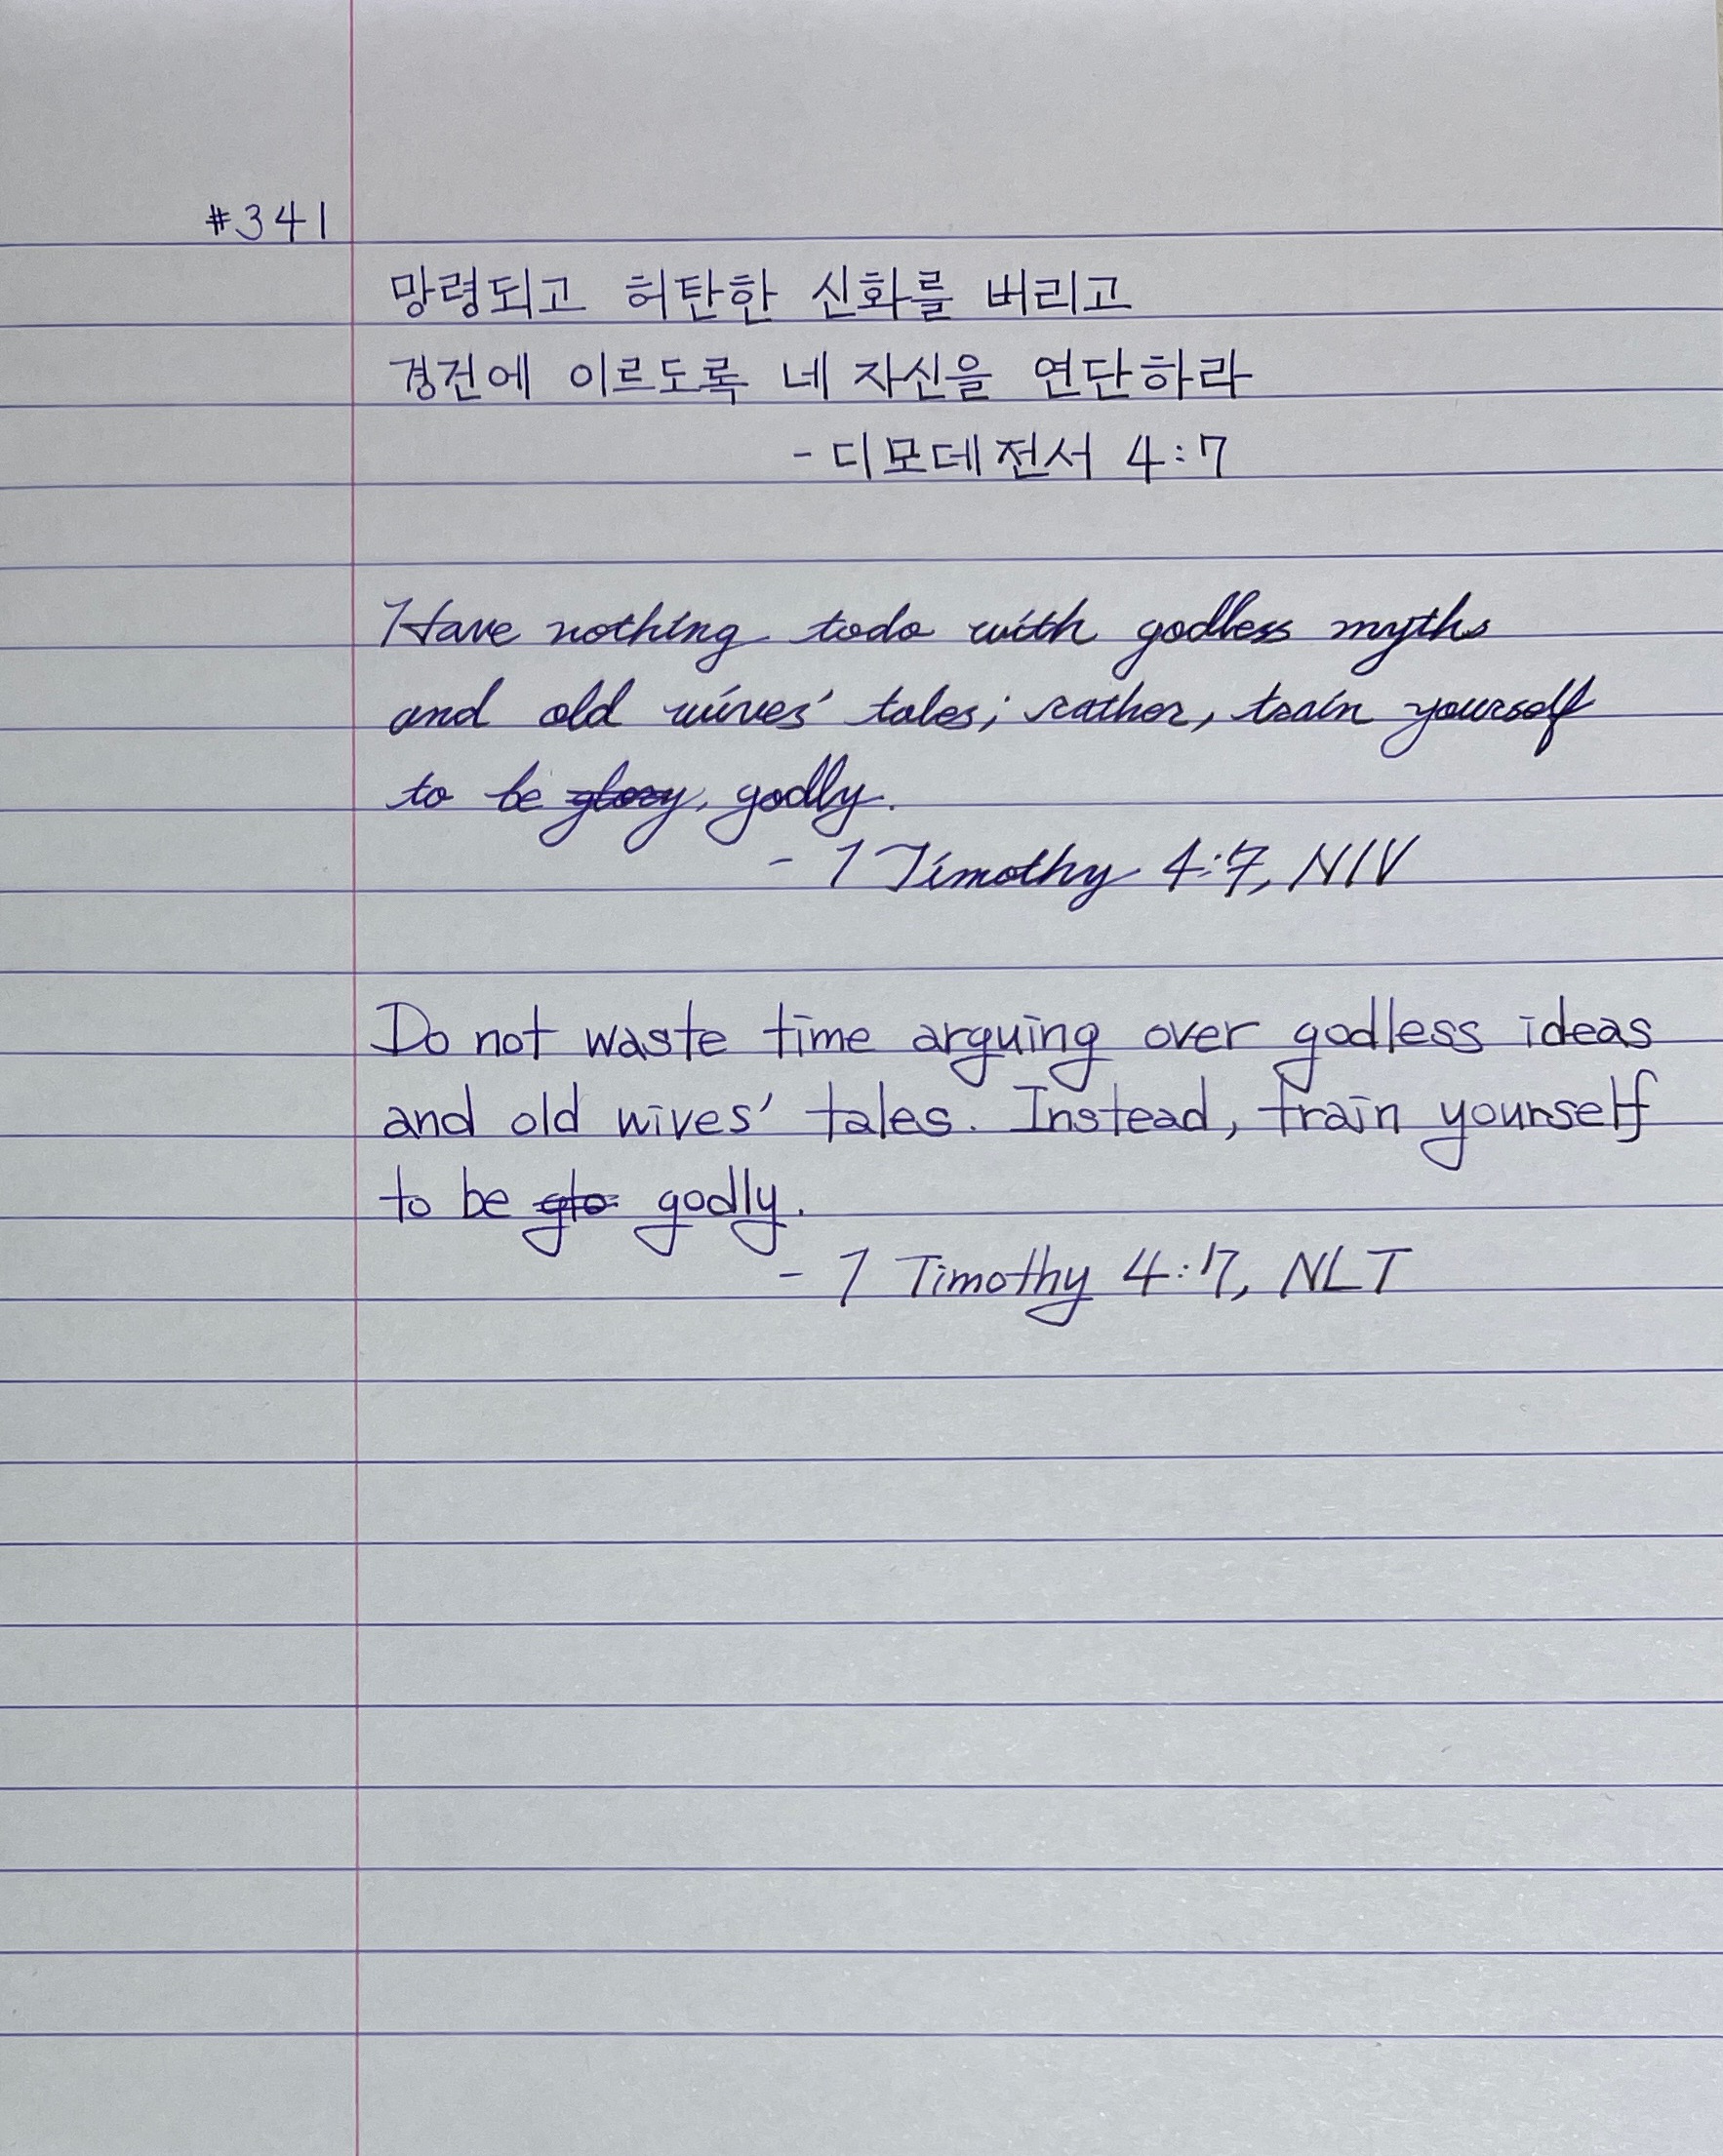 #341
망령되고 허탄한 신화를 버리고
경건에 이르도록 네 자신을 연단하라
- 디모데전서 4:7
Have nothing todo with godless myths
and old wives' tales; rather, train yourself
to be glory, godly.
- 1 Timothy 4:7, NIV
Do not waste time arguing over godless ideas
and old wives' tales. Instead, train yourself
to be glo godly.
- 1 Timothy 4:7, NLT